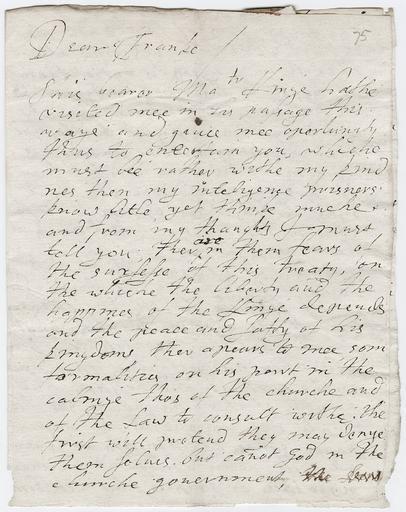 75
Dear Franke /
This bearar Mr Kinge hathe
visited mee in his pasage this
waye and gives mee oportunity
thus to entertain you, whiche
must bee rather withe my kind
nes then my inteligence prisners
know litle, yet thinke muche,
and from my thaughts I must
tell you, ther are in them fears of
the sucksese of this treaty, on
the whiche the liberty and the
happines of the Kinge depends
and the peace and safty of his
kingdoms ther apears to mee som
formalities on his part in the
calinge thos of the churche and
of the Law to consult withe. the
first will pretend they may denye
them selves. but canot God in the
churche government,